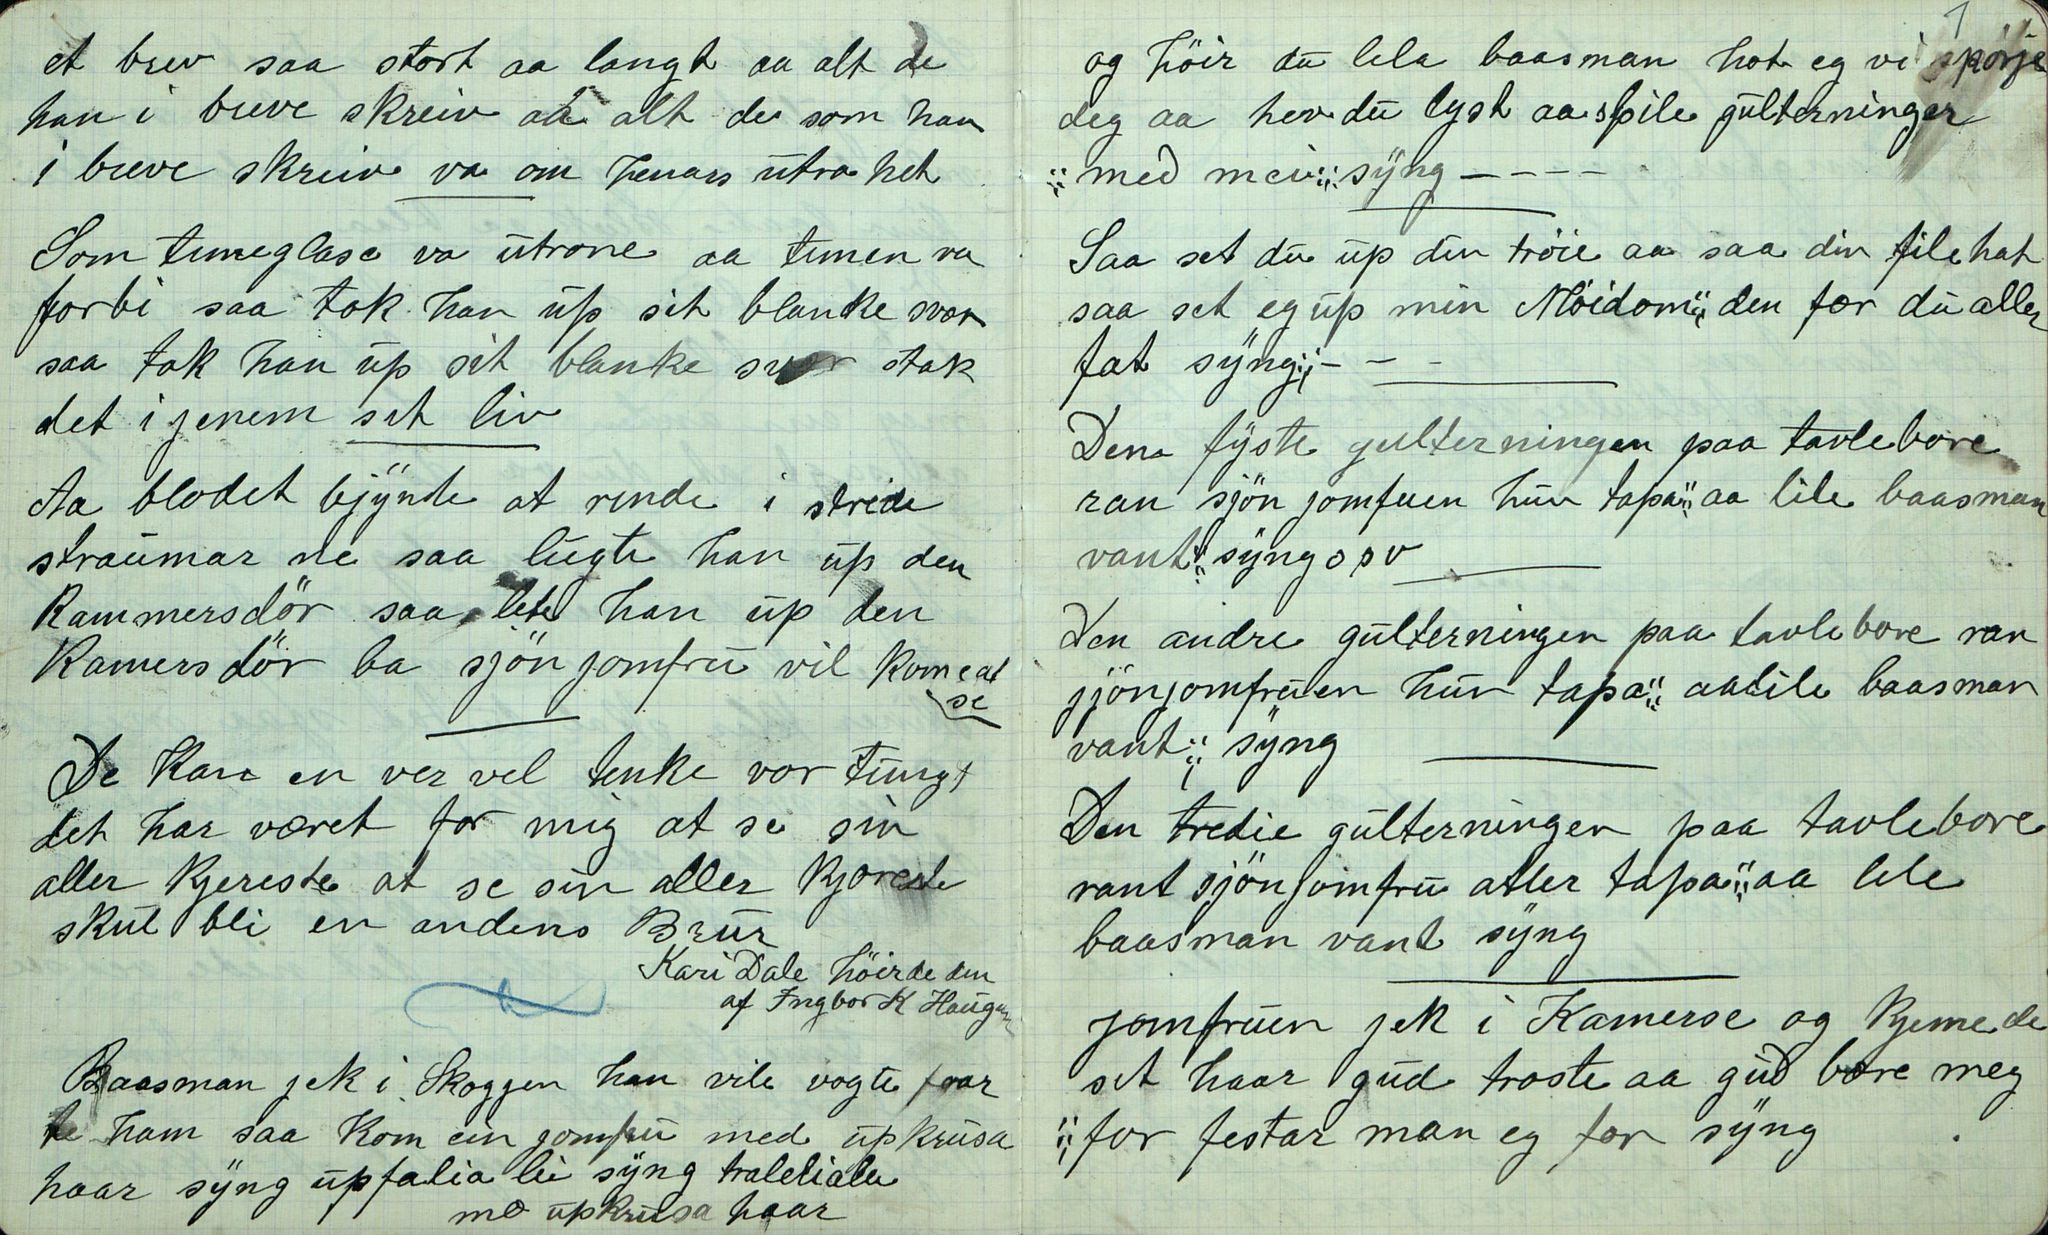 et brev saa stort aa langt aa alt de
han i breve skreiv aa alt de som han
i breve skreiv va om henars utrohet
Som timeglase va utrone aa timen va
forbi saa tok han up sit blanke svær
saa tok han up sit blanke svær stak
det i jenem sit liv
Aa blodet bjÿnte at rinde i stride
straumar ne saa lugte han up den
Kammersdör saa lete han up den
Kamersdör ba sjön jomfru vil kome at
se
De Kan en ver vel tenke vor tungt
det har været for mig at se sin
aller kjereste at se sin aller kjæreste
skul bli en andens Brur
Kari Dale höirde den
af Ingbor K Haugen
Baasman jek i Skoggen han vile vogte faar
te ham saa kom ein jomfru med upkrusa
haar sÿng upfalia lii sÿng tralelialei
me upkrusa haar
1
og höir du lela baasman hot eg vi spörje
deg aa hev du lyst aa spile gulterninger
:,: med mei :,: sÿng – – – –
Saa set du up din tröie aa saa din file hat
saa set eg up min Möidom :,: den fær du aller
fat sÿng :,: – – –
Den fÿste gulterningen paa tavlebore
ran sjön jomfuen hun tapa :,: aa lile baasman
vant :,: sÿng osv
Den andre gulterningen paa tavlebore ran
sjönjomfruen hun tapa :,: aa lile baasman
vant :,: sÿng
Den tredie gulterningen paa tavlebore
rant sjönjomfru atler tapa :,: aa lele
baasman vant sÿng
jomfruen jek i Kamerse og kjemede
sit haar gud troste aa gud bære meg
:,: for festar man eg for sÿng